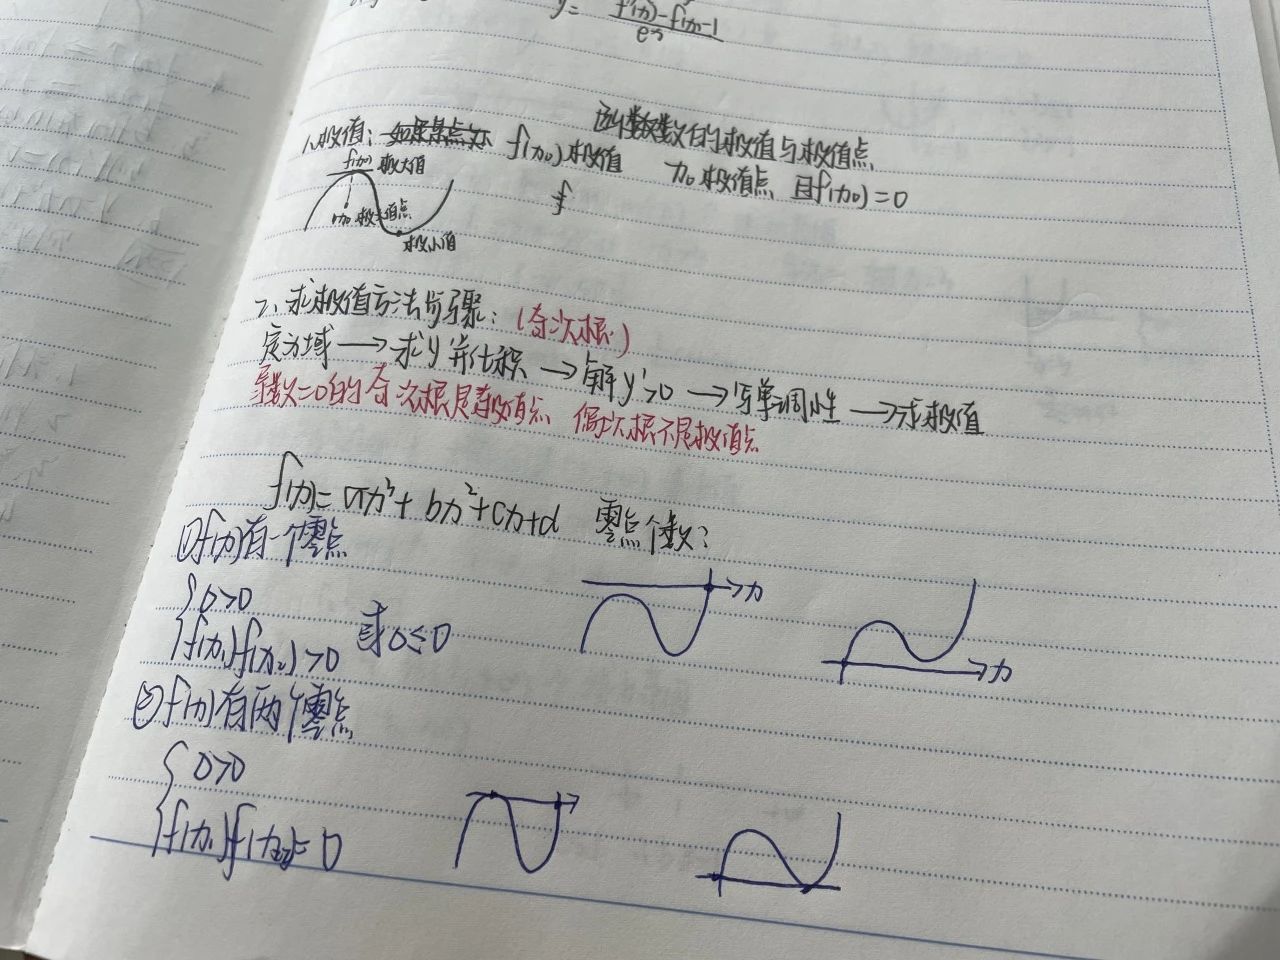 y= f(x)-f(x)-1
ex
函数的极值与极值点
1、极值: f(x₀)极值 x₀极值点 且f(x₀)=0
f(x₀) 极大值
x₀极大值点
极小值
2、求极值方法步骤: (奇次根)
定义域→求y'并化积→解y'>0→写单调性→求极值
导数=0的奇次根是极值点、偶次根不是极值点
f(x)=ax³+bx²+cx+d 零点个数?
①f(x)有一个零点
{Δ>0
f(x₁)f(x₂)>0 或Δ≤0
x
x
②f(x)有两个零点
{Δ>0
f(x₁)f(x₂)=0